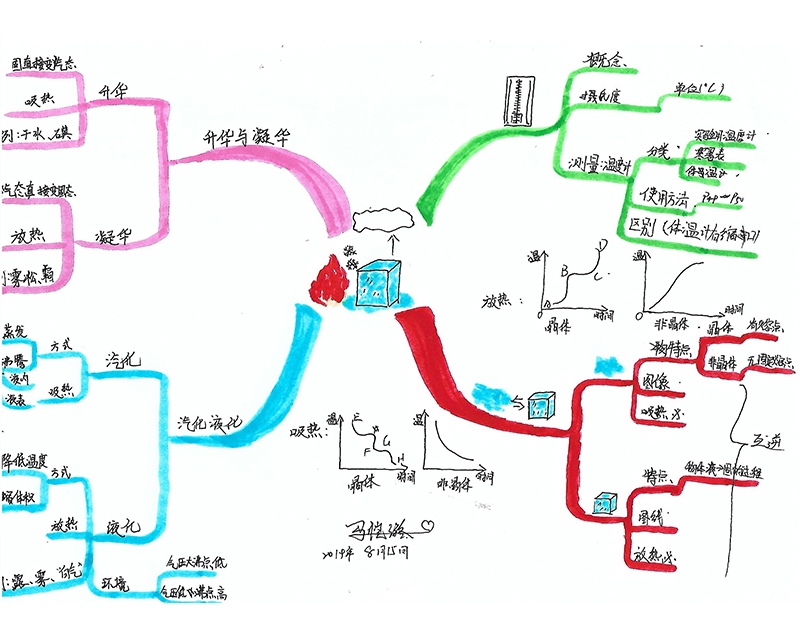 固直接变气态
吸热
升华
列:干水、碘
升华与凝华
汽态直接变固态
放热
凝华
雾松、霜
概念
摄氏度
单位(℃)
测量:温度计
分类
实验用温度计
寒暑表
体温计
使用方法
区别(体温计有缩口)
放热:
温
A
B
C
D
时间
晶体
温
时间
非晶体
物特点
晶体
有熔点
非晶体
无固定熔点
图像
吸热
互逆
特点
物体液→固的过程
图线
放热
蒸发
方式
沸腾
液内
液表
吸热
汽化
汽化液化
降低温度
方式
放热
液化
露、雾、"白气"
环境
气压大沸点低
气压低沸点高
吸热:
温
E
F
G
H
时间
晶体
温
时间
非晶体
2019年 8月15日